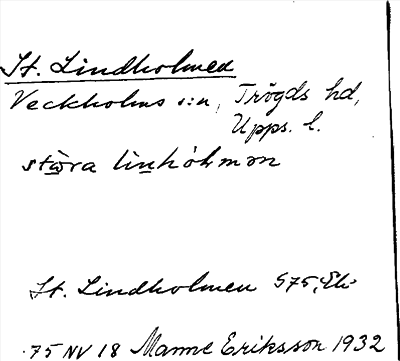 St. Lindholmen
Veckholms s:n, Trögds hd,
Upps. l.
stὼra linhòḷmən
St. Lindholmen S75, Ek.
75 NV 18 Manne Eriksson 1932